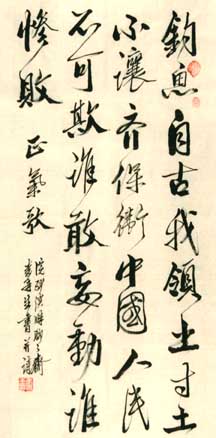 釣魚自古我領土寸土
不讓齐保衛中國人民
不可欺誰敢妄動誰
惨敗 正氣歌